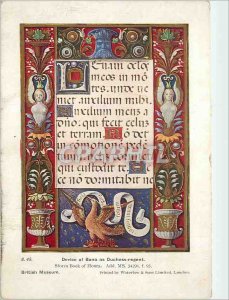 Leuaui ocu
meos in mo
tes. unde ue
niet auxilium mihi.
Auxilium meus a
dno. qui fecit celus
et terram. Non det
in comotione pede
qui custodit te.
ce non dormitabit ne
Device of Bona as Duchess-regent.
Sforza Book of Hours. Add. MS. 34294, f.
British Museum. Printed by Waterlow & Sons Limited, London.